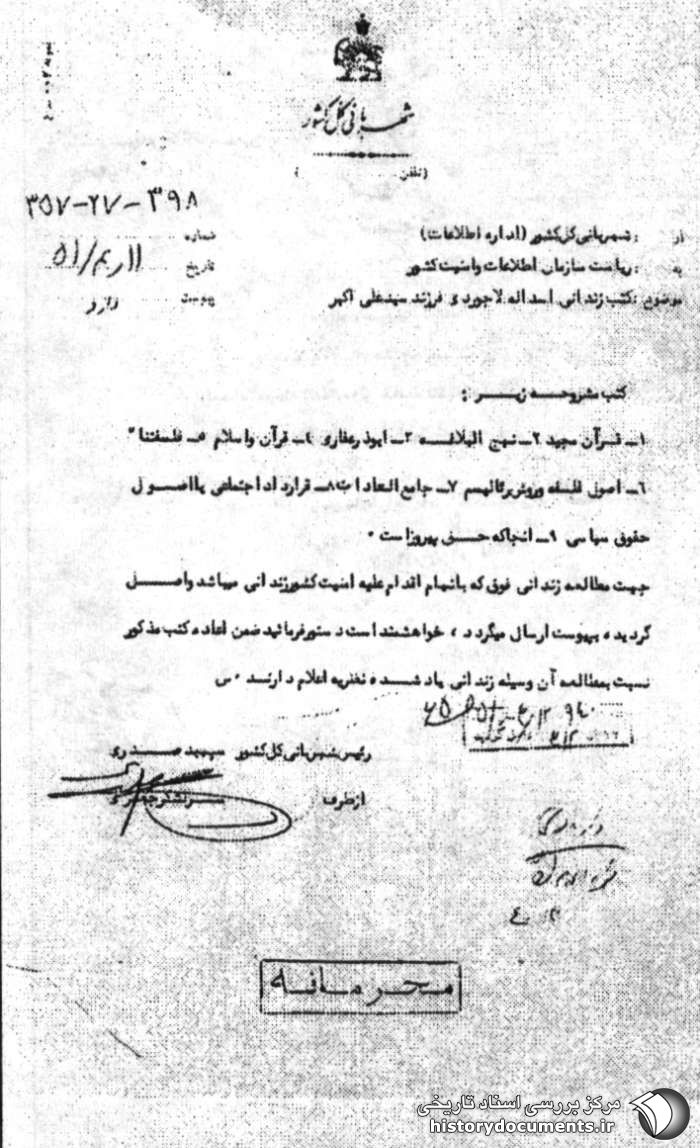 شهربانی کل کشور
(تلفن )
۳۵۷-۲۷-۳۹۸
شماره
از : شهربانی کل کشور (اداره اطلاعات)
تاریخ
به : ریاست سازمان اطلاعات وامنیت کشور
پیوست دارد
موضوع : کتب زندانی اسداله لاجوردی فرزند سیدعلی اکبر
کتب مشروحه زیر :
۱ـ قرآن مجید ۲ـ نهج البلاغه ۳ـ ابوذر غفاری ٤ـ قرآن واسلام ۵ـ فلسفتنا"
۶ـ اصول فلسفه وروش رئالیسم ۷ـ جامع السعادات ۸ـ قرارداد اجتماعی یا اصول
حقوق سیاسی ۹ـ آنجاکه حق پیروز است ۰
جهت مطالعه زندانی فوق که باتهام اقدام علیه امنیت کشور زندانی میباشد واصل
گردیده بپیوست ارسال میگردد ، خواهشمند است دستور فرمائید ضمن اعاده کتب مذکور
نسبت بمطالعه آن وسیله زندانی یاد شده نظریه اعلام دارند ۰ س
رئیس شهربانی کل کشور سپهبد صدری
از طرف سرلشکر جعفری
محرمانه
مرکز بررسی اسناد تاریخی
historydocuments.ir